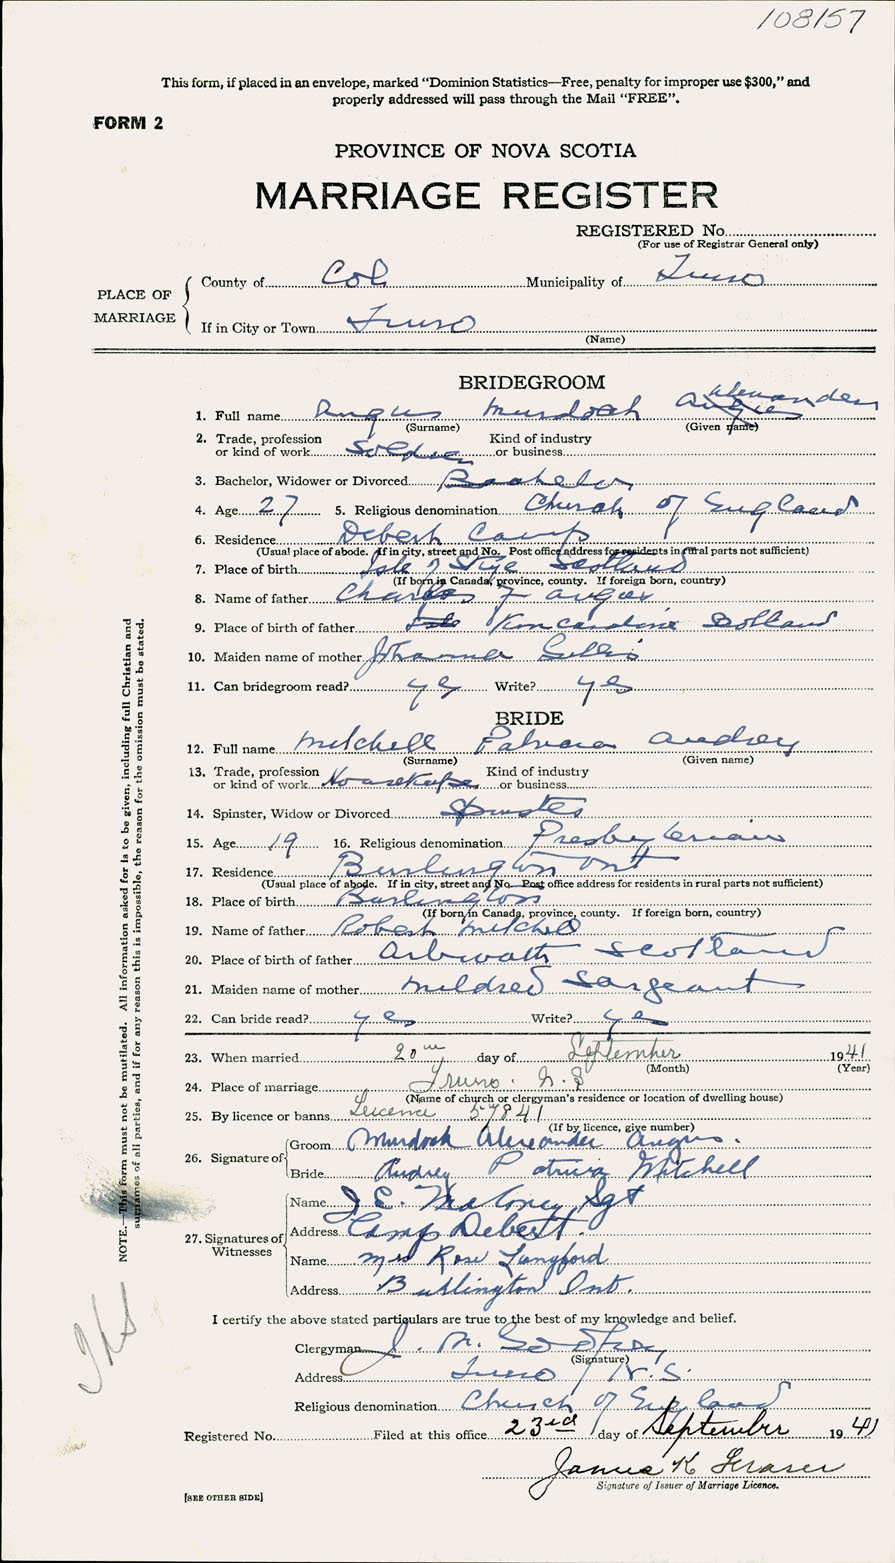 108157
This form, if placed in an envelope, marked “Dominion Statistics—Free, penalty for improper use $300,” and
properly addressed will pass through the Mail “FREE”.
FORM 2
PROVINCE OF NOVA SCOTIA
MARRIAGE REGISTER
REGISTERED No.
(For use of Registrar General only)
PLACE OF MARRIAGE
County of Col Municipality of Truro
If in City or Town Truro
(Name)
BRIDEGROOM
1. Full name Angus Murdoch Angus Alexander
(Surname) (Given name)
2. Trade, profession or kind of work Soldier Kind of industry or business
3. Bachelor, Widower or Divorced Bachelor
4. Age 27 5. Religious denomination Church of England
6. Residence Debert Camp
(Usual place of abode. If in city, street and No. Post office address for residents in rural parts not sufficient)
7. Place of birth Isle of Skye Scotland
(If born in Canada, province, county. If foreign born, country)
8. Name of father Charles F Angus
9. Place of birth of father Isle Kincardine Scotland
10. Maiden name of mother Johanna Gillis
11. Can bridegroom read? yes Write? yes
BRIDE
12. Full name Mitchell Patricia Audrey
(Surname) (Given name)
13. Trade, profession or kind of work Housekeeper Kind of industry or business
14. Spinster, Widow or Divorced Spinster
15. Age 19 16. Religious denomination Presbyterian
17. Residence Burlington Ont
(Usual place of abode. If in city, street and No. Post office address for residents in rural parts not sufficient)
18. Place of birth Burlington
(If born in Canada, province, county. If foreign born, country)
19. Name of father Robert Mitchell
20. Place of birth of father Arbroath Scotland
21. Maiden name of mother Mildred Sargeant
22. Can bride read? yes Write? yes
23. When married 20th day of September 1941
(Month) (Year)
24. Place of marriage Truro. N.S
(Name of church or clergyman's residence or location of dwelling house)
25. By licence or banns Licence 57841
(If by licence, give number)
26. Signature of Groom Murdoch Alexander Angus.
Bride Audrey Patricia Mitchell
27. Signatures of Witnesses
Name J. E. Maloney Sgt
Address Camp Debert.
Name Mrs Rose Langford
Address Burlington Ont.
I certify the above stated particulars are true to the best of my knowledge and belief.
Clergyman J. M.
(Signature)
Address Truro N.S.
Religious denomination Church of England
Registered No. Filed at this office 23rd day of September 1941
James K Fraser
Signature of Issuer of Marriage Licence.
[SEE OTHER SIDE]
NOTE.—This form must not be mutilated. All information asked for is to be given, including full Christian and
surnames of all parties, and if for any reason this is impossible, the reason for the omission must be stated.